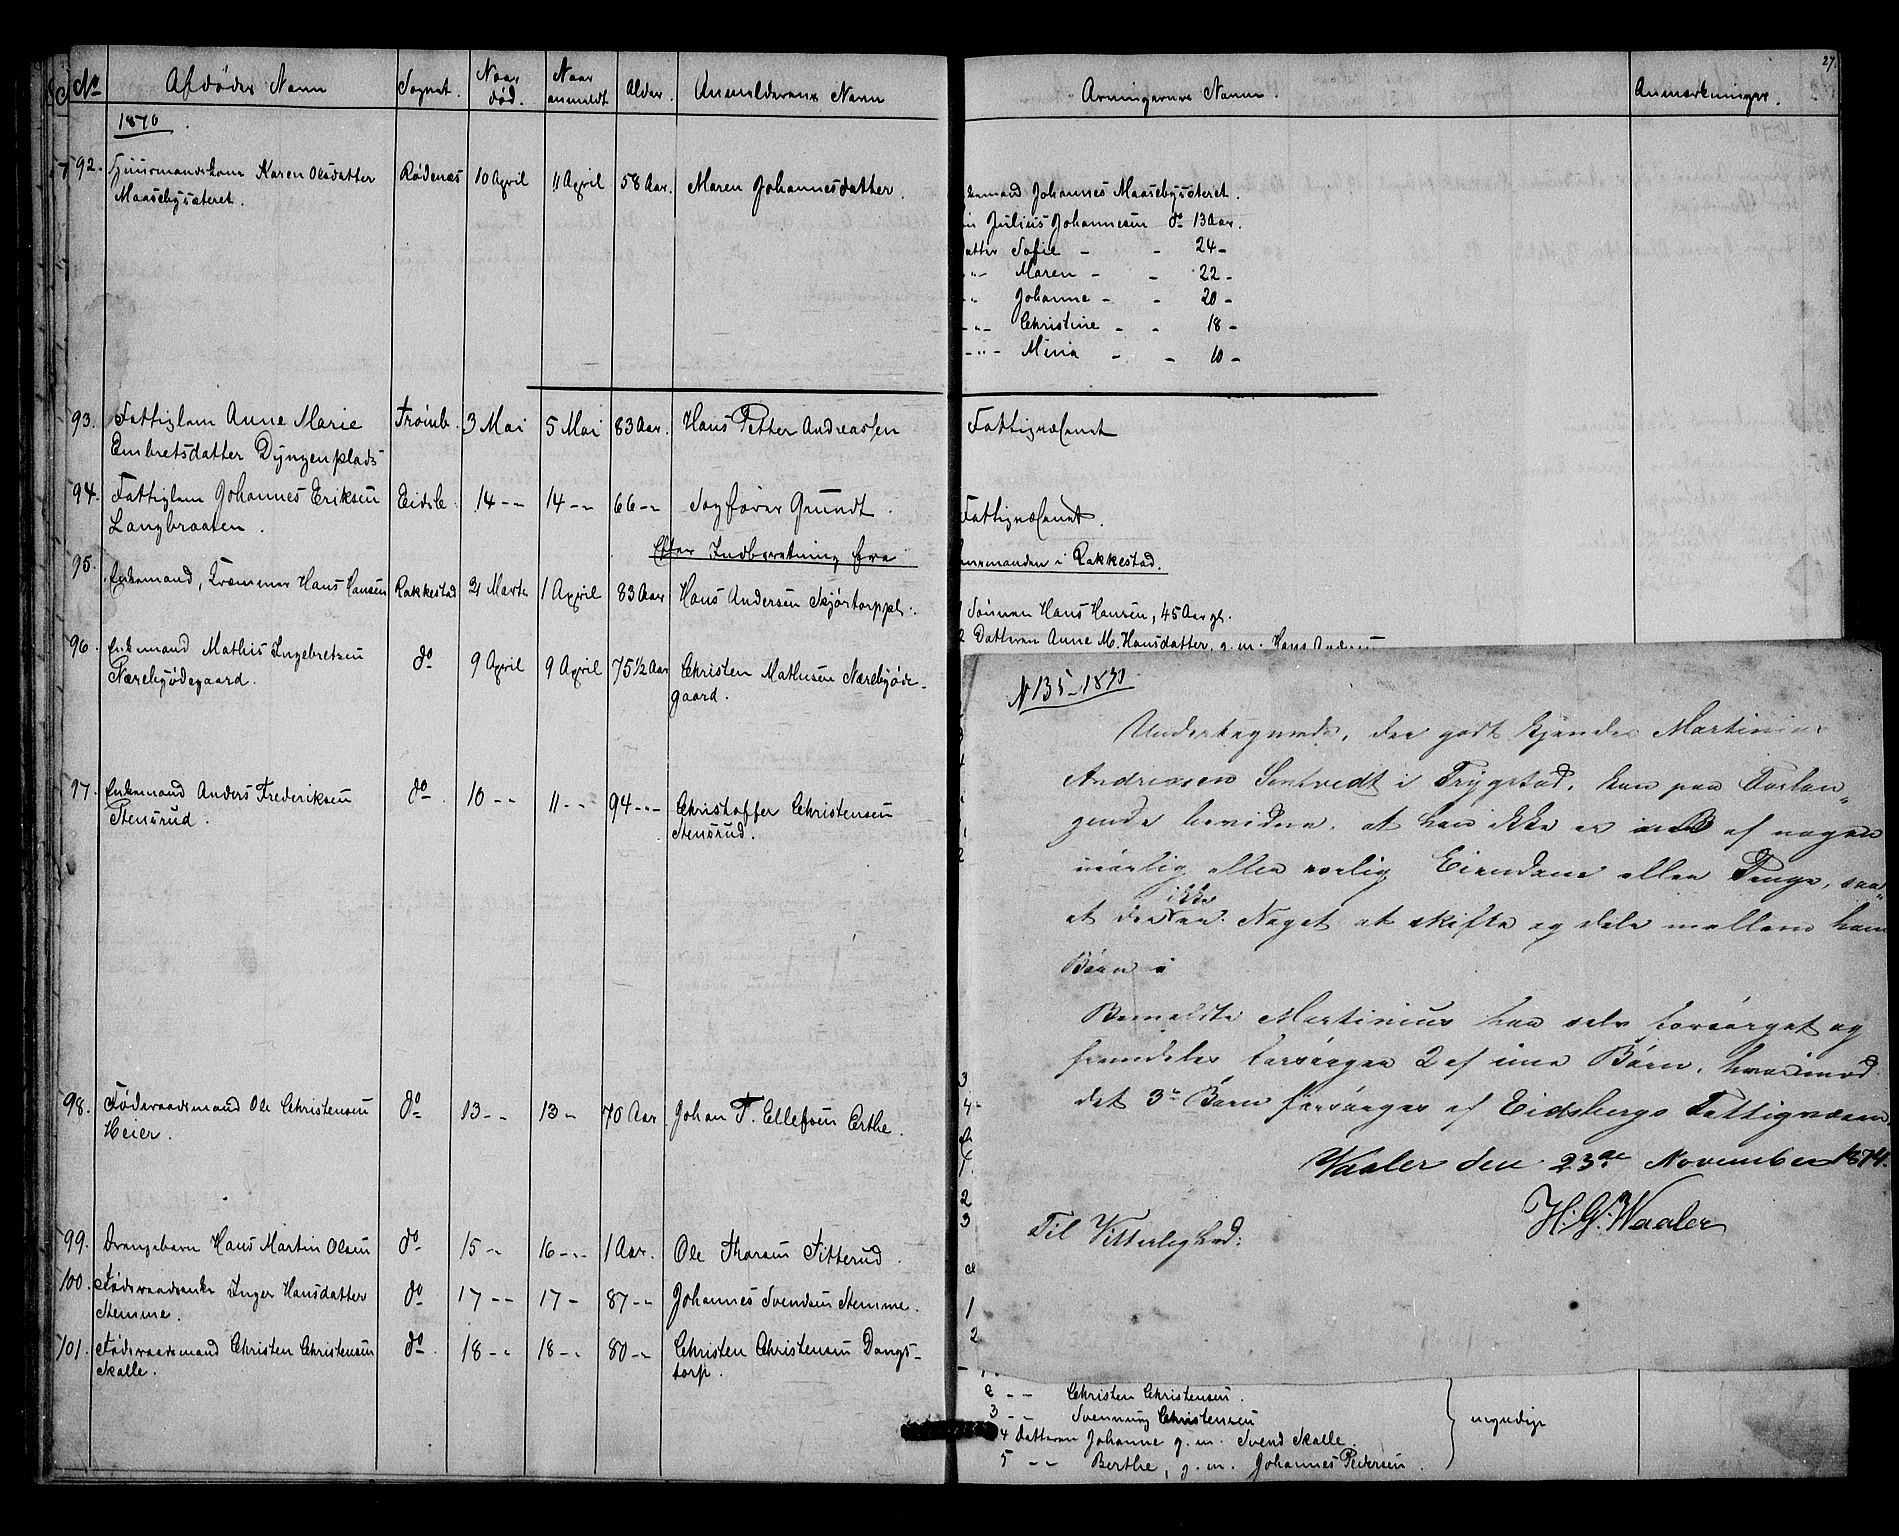 No Afdødes Navn Sognet. Naar død. Naar anmeldt Alder. Anmelderens Navn
1870.
92. Huusmandskone Karen Olsdatter Rødenæs 10 April 11 April 58 Aar. Maren Johannesdatter.
Maasebysæteret.
93. Fattiglem Anne Marie Trømb. 3 Mai 5 Mai 83 Aar. Hans Petter Andreassen
Embretsdatter Dyngenplads
94. Fattiglem Johannes Eriksen Eidsb. 14 -- 14 -- 66 -- Sagfører Grundt.
Langbraaten.
Efter Indberetning fra
95. Enkemand, Hans Hansen Rakkestad 21 Marts 1 April 83 Aar Hans Andersen Skjørtorppl.
96. Enkemand Mathis Ingebretsen do 9 April 9 April 75 1/2 Aar Christen Mathisen Nærebyøde-
Nærebyødegaard. gaard.
97. Enkemand Anders Frederiksen do. 10 -- 11 -- 94 -- Christoffer Christensen
Stensrud. Stensrud.
98. Føderaadsmand Ole Christensen do 13 -- 13 - 70 Aar. Johan F. Ellefsen Erthe.
Heier.
99. Drengebarn Hans Martin Olsen do 15 -- 16 -- 1 Aar. Ole Thorsen Fitterud.
100. Føderaadsenke Inger Hansdatter do 17 -- 17 - 87 -- Johannes Svendsen Stemme.
Stemme.
101. Føderaadsmand Christen Christensen do. 18 -- 18 -- 80 -- Christen Christensen Dangs-
Skalle. torp.
27.
Arvingernes Navne Anmærkninger.
Johannes Maasebysæteret.
Julius Johannesen do 13 Aar.
Sofie - - 24 -
Maren - - 22 -
Johanne - - 20 -
Christine - - 18 -
Mina - - 10 -
Fattigvæsenet
Fattigvæsenet.
i Rakkestad.
1 Sønnen Hans Hansen, 45 Aar gl.
2 Datteren Anne M. Hansdatter, g. m. Hans Andersen
N 135-1870
Undertegnede, der godt kjender Martinius
Andreasen Sentvedt i Trygstad, kan paa Forlan-
gende bevidne, at han ikke er af nogen
eller rørlig Eiendom eller Penge, saa
at der ikke var Noget at skifte og dele mellem hans
Børn
Bemeldte Martinius har selv forsørget og
fremdeles forsørger 2 af sine Børn, hvorimod
det 3de Barn forsørges af Eidsbergs Fattigvæsen,
Vaaler den 23de November 1874.
H. G. Waaler
Til Vitterlighed:
2 -- Christen Christensen.
3 -- Svenning Christensen
4 Datteren Johanne g. m. Svend Skalle. myndige
5 -- Berthe, g. m. Johannes Pedersen.